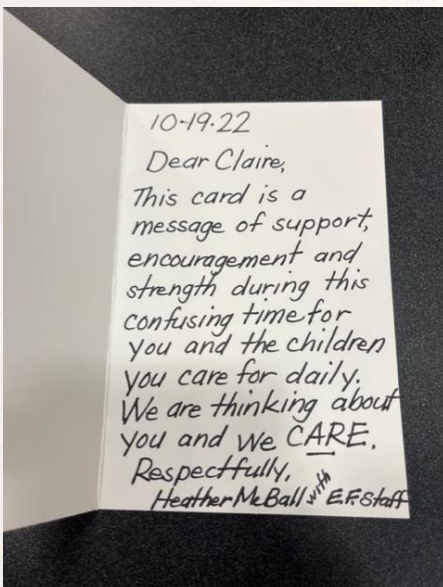 10-19-22
Dear Claire,
This card is a
message of support,
encouragement and
strength during this
confusing time for
you and the children
you care for daily.
We are thinking about
you and we CARE.
Respectfully,
Heather McBall with E.F. Staff